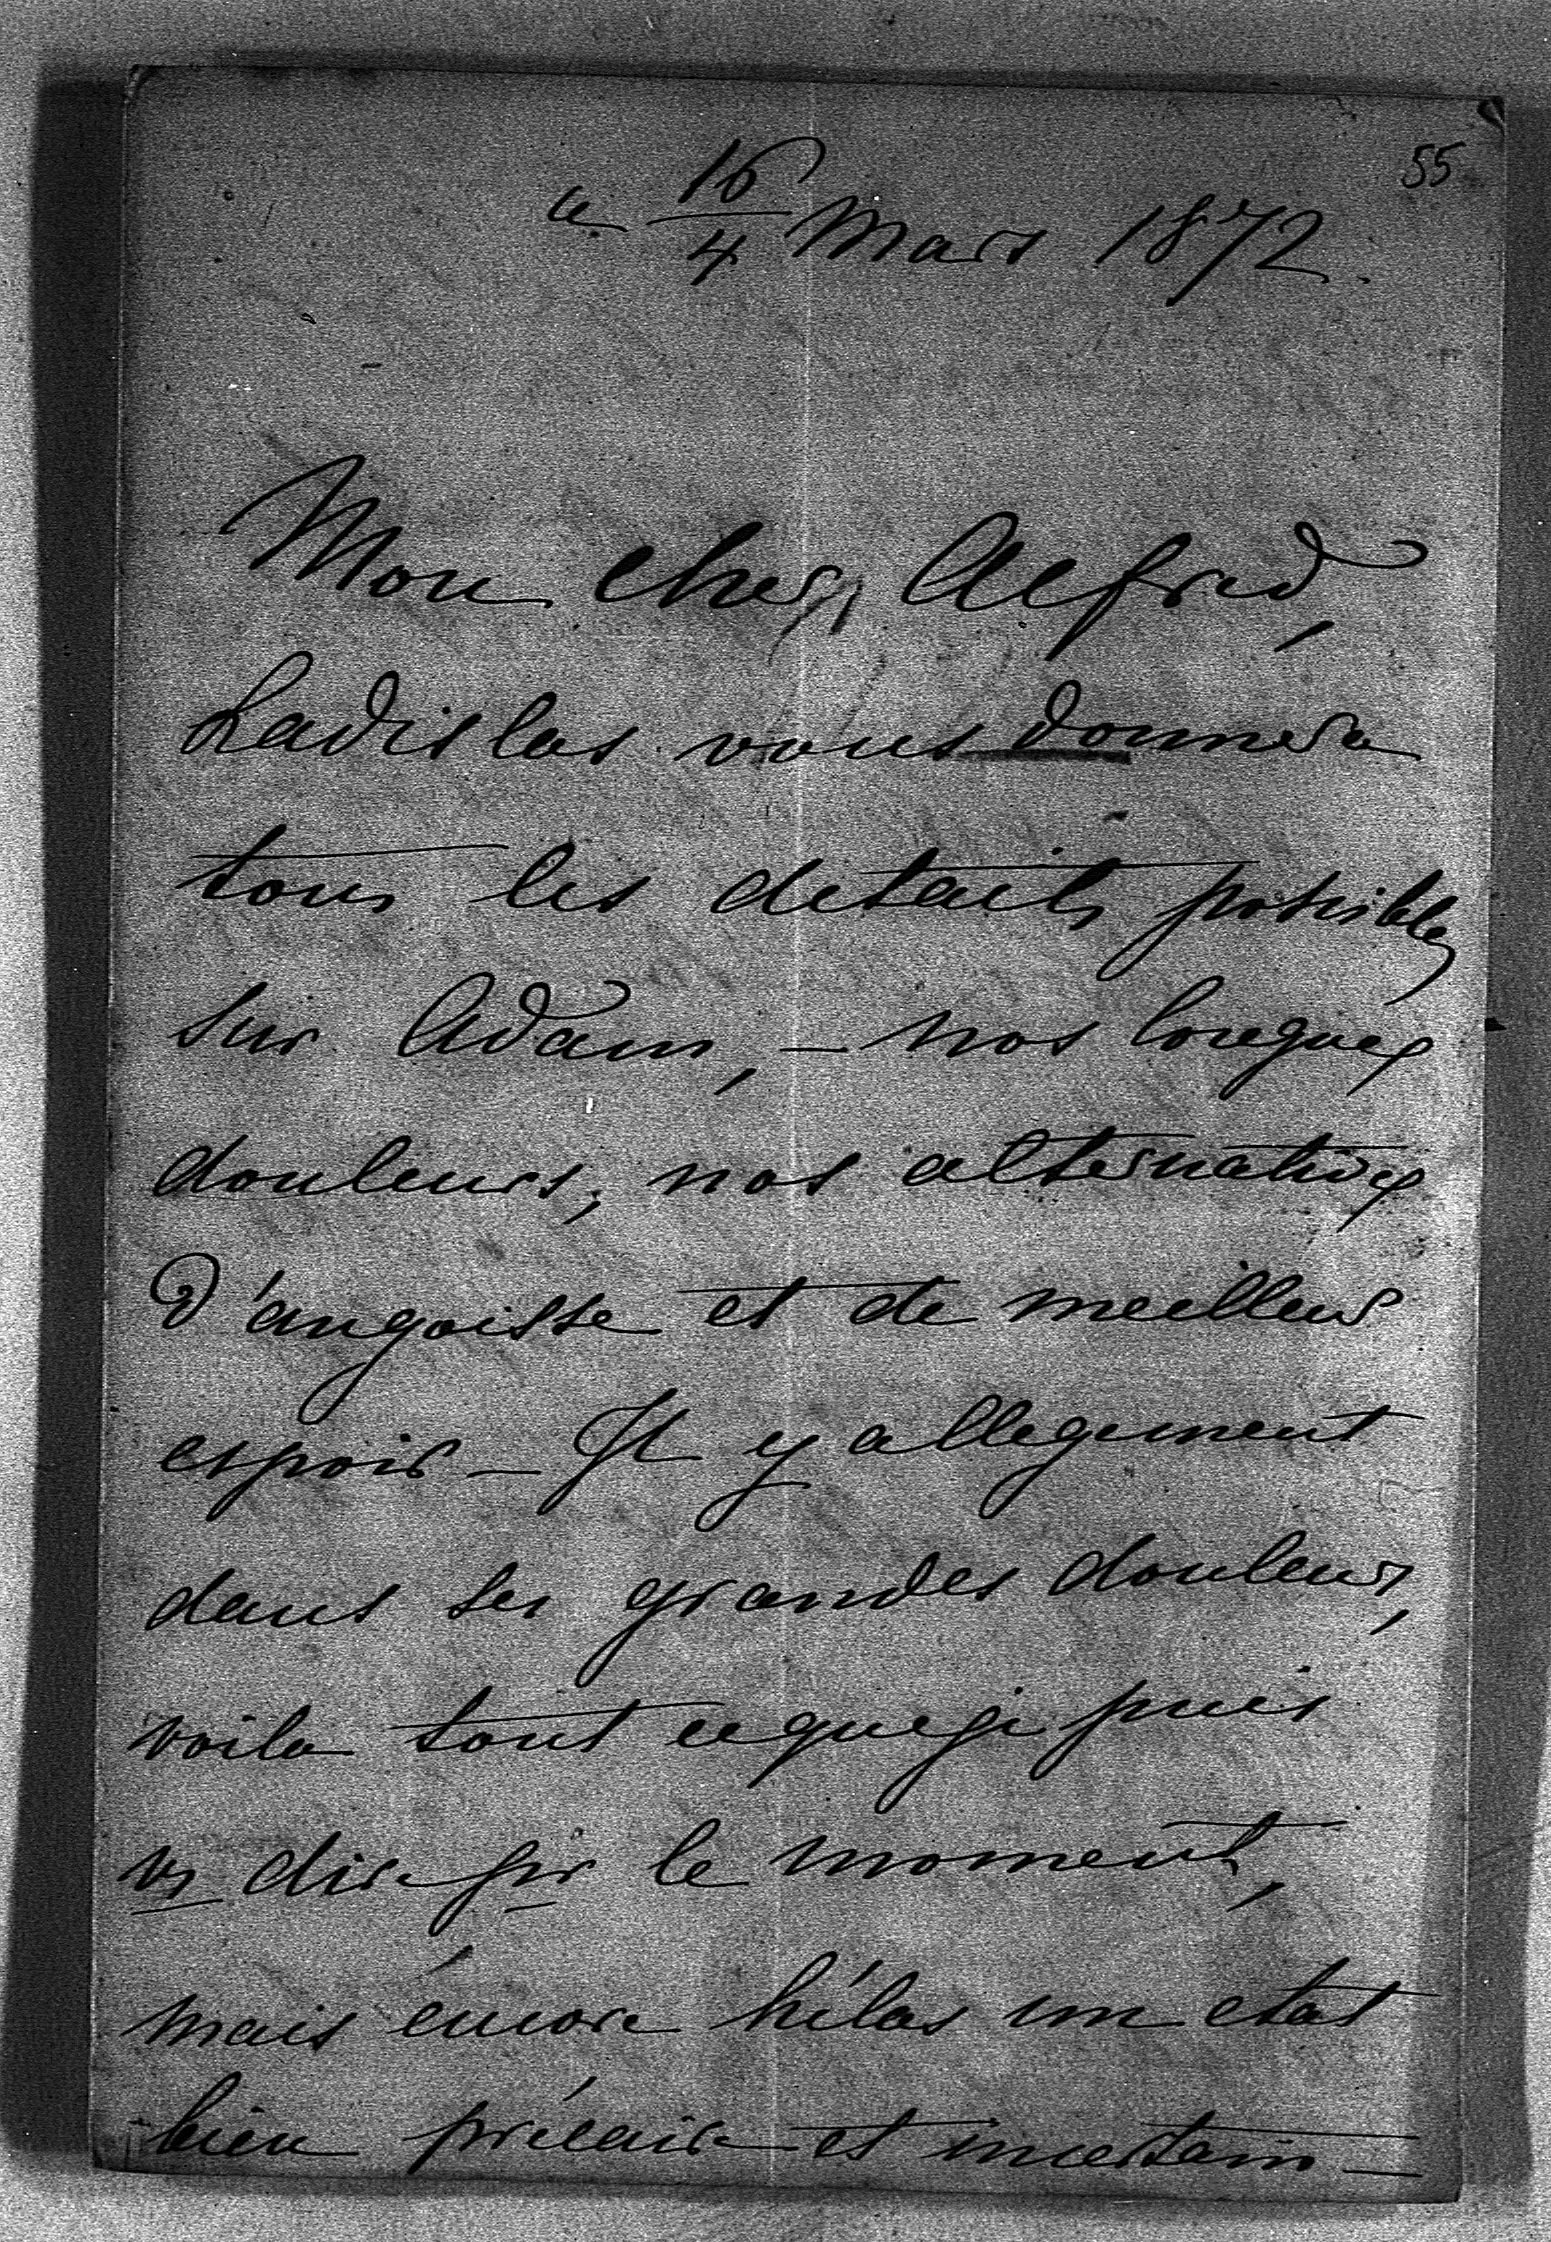 55
ce 16/4 Mars 1872.
Mon cher, Alfred,
Ladislas vous donnera
tous les details possibles
sur Adam, – nos longues
douleurs, nos alternatives
d'angoisse et de meilleur
espoir – Il y allegement
dans ses grandes douleurs,
voila tout ce que je puis
vs dire pr le moment,
mais éncore hélas un etat
bien précaire et incertain –